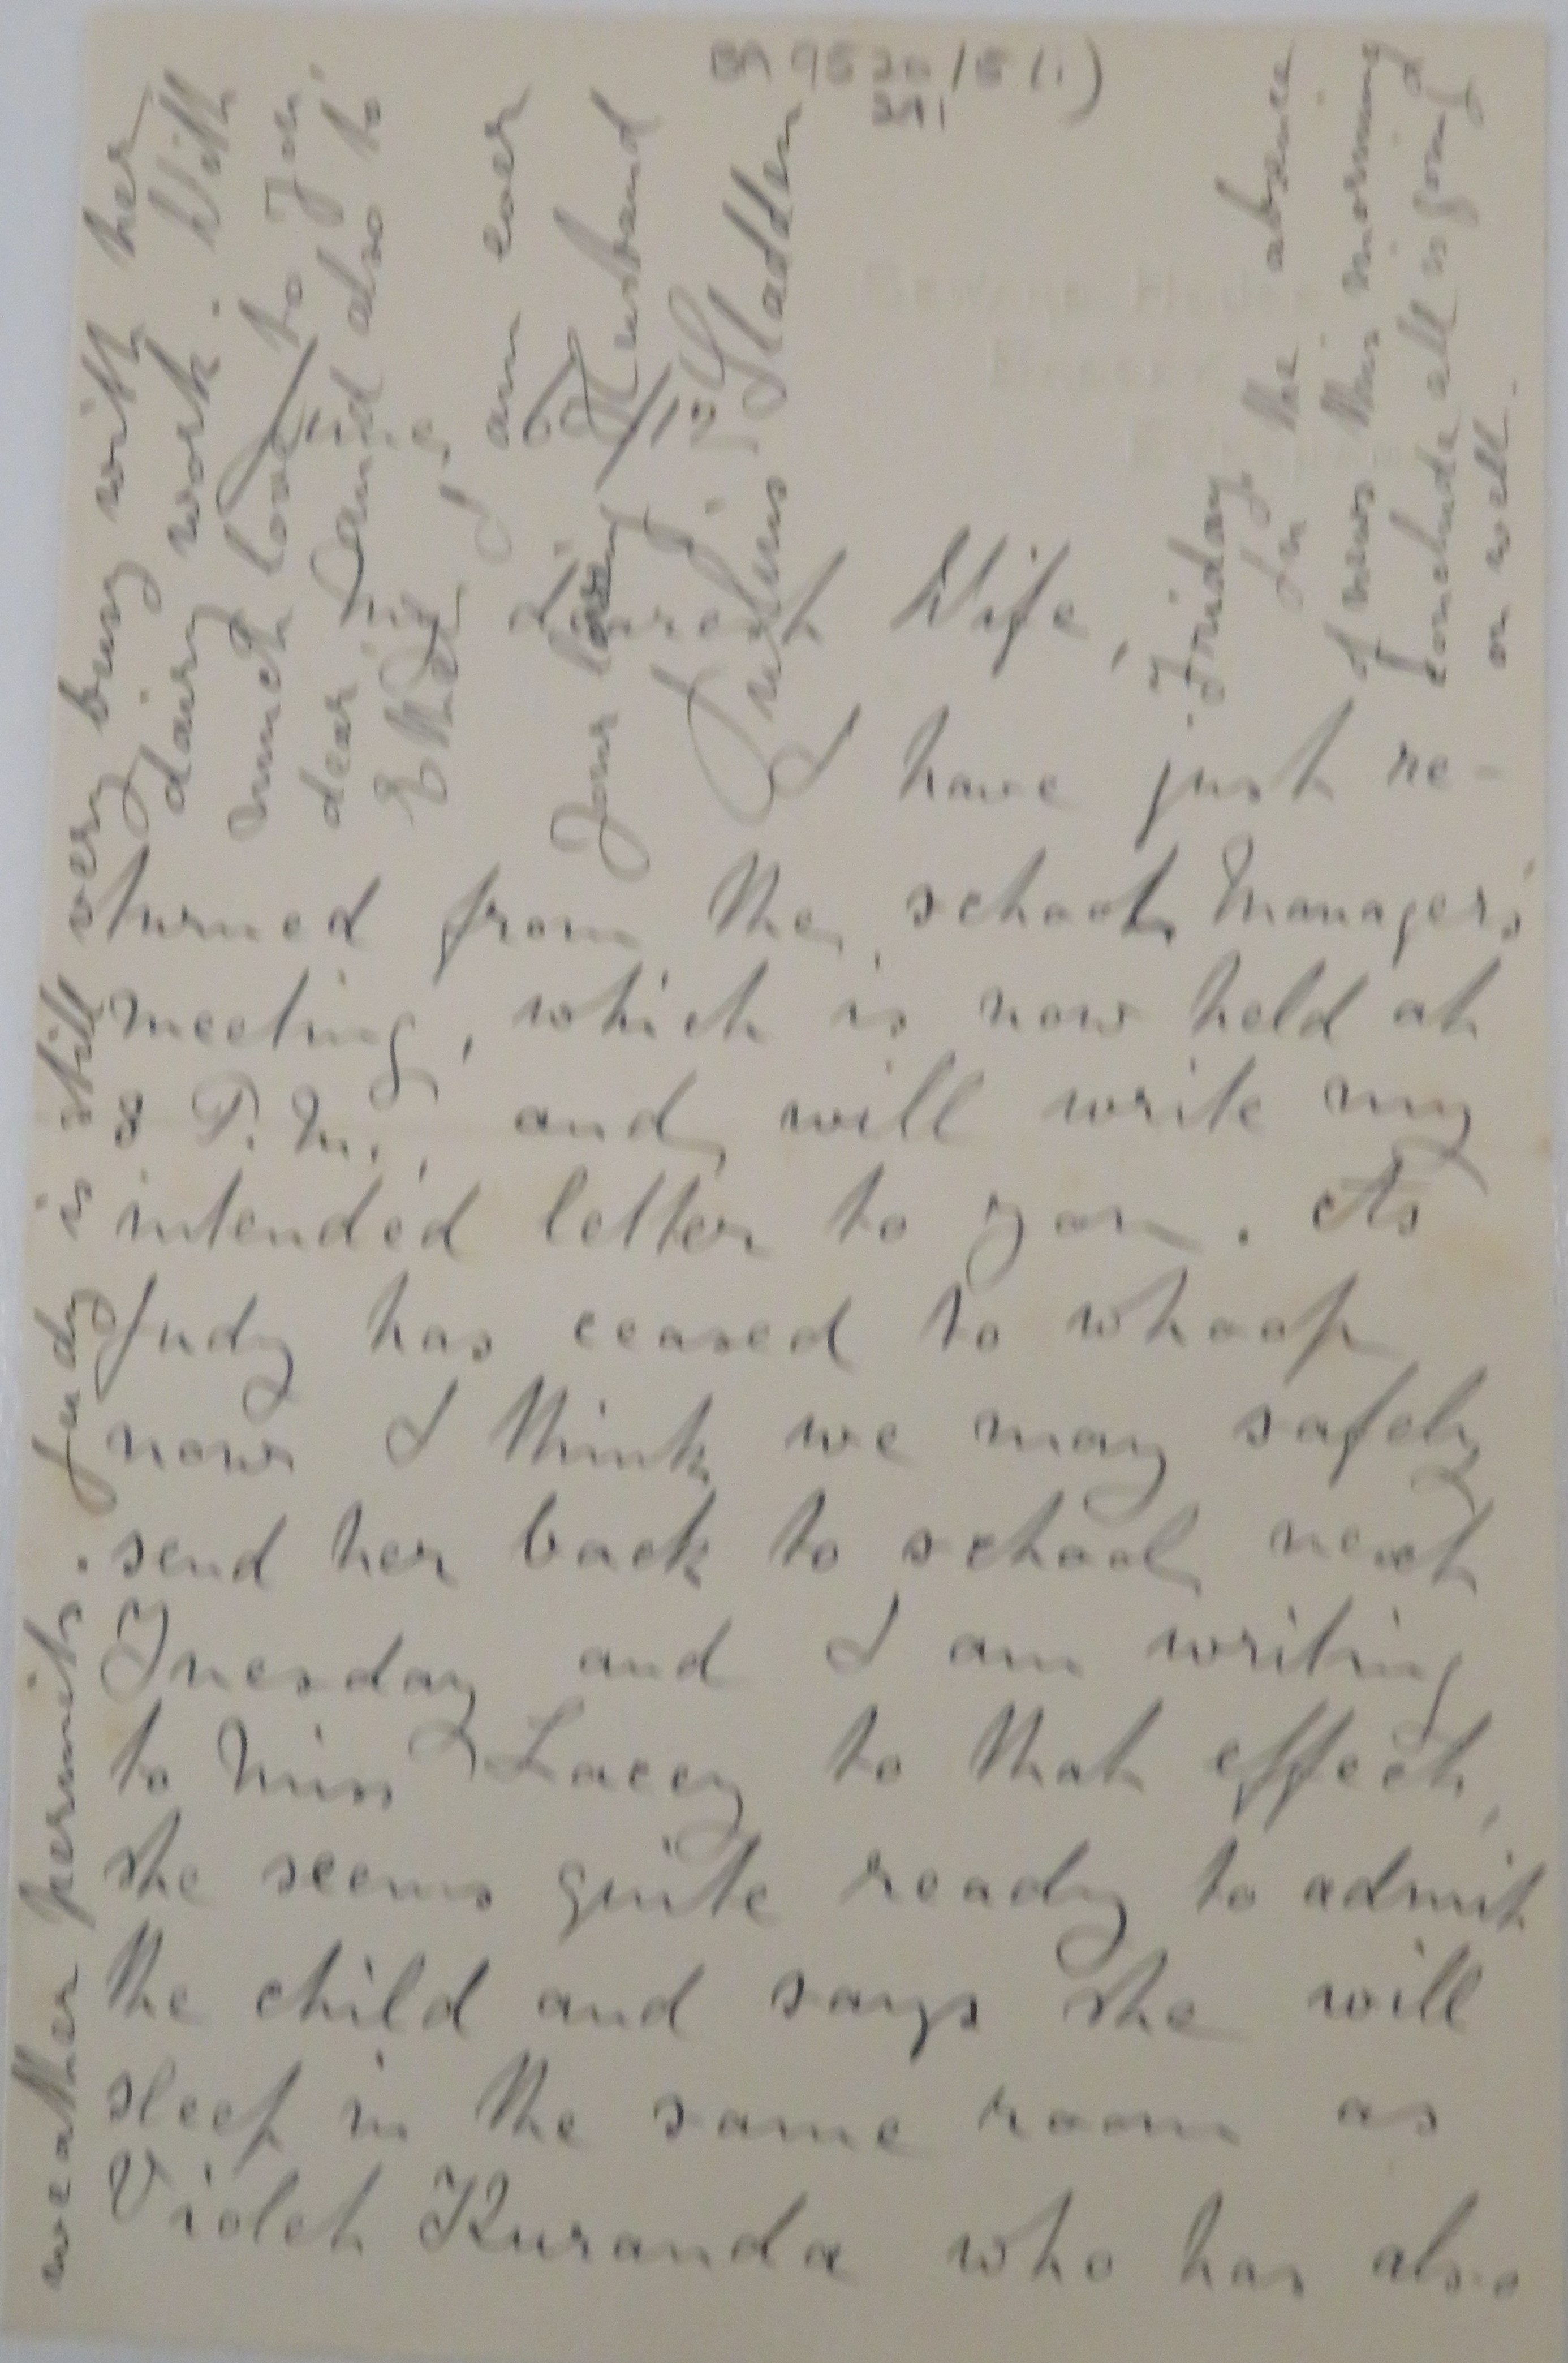 BA 9520/5(i)
2A1
6/1/12
My dearest Wife,
I have just re-
turned from the school Managers'
meeting, which is now held at
8 P.M., and will write my
intended letter to you. As
Judy has ceased to whoop
now I think we may safely
send her back to school next
Tuesday and I am writing
to Miss Lacey to that effect,
she seems quite ready to admit
the child and says she will
sleep in the same room as
Violet Kuranda who has also
weather permits. Judy is still very busy with her
dairy work. With
much love to you
dear and also to
Ethel
I am ever
Your loving Husband
Julius Sladden
Friday. In the absence
of news this morning
I conclude all is going
on well.